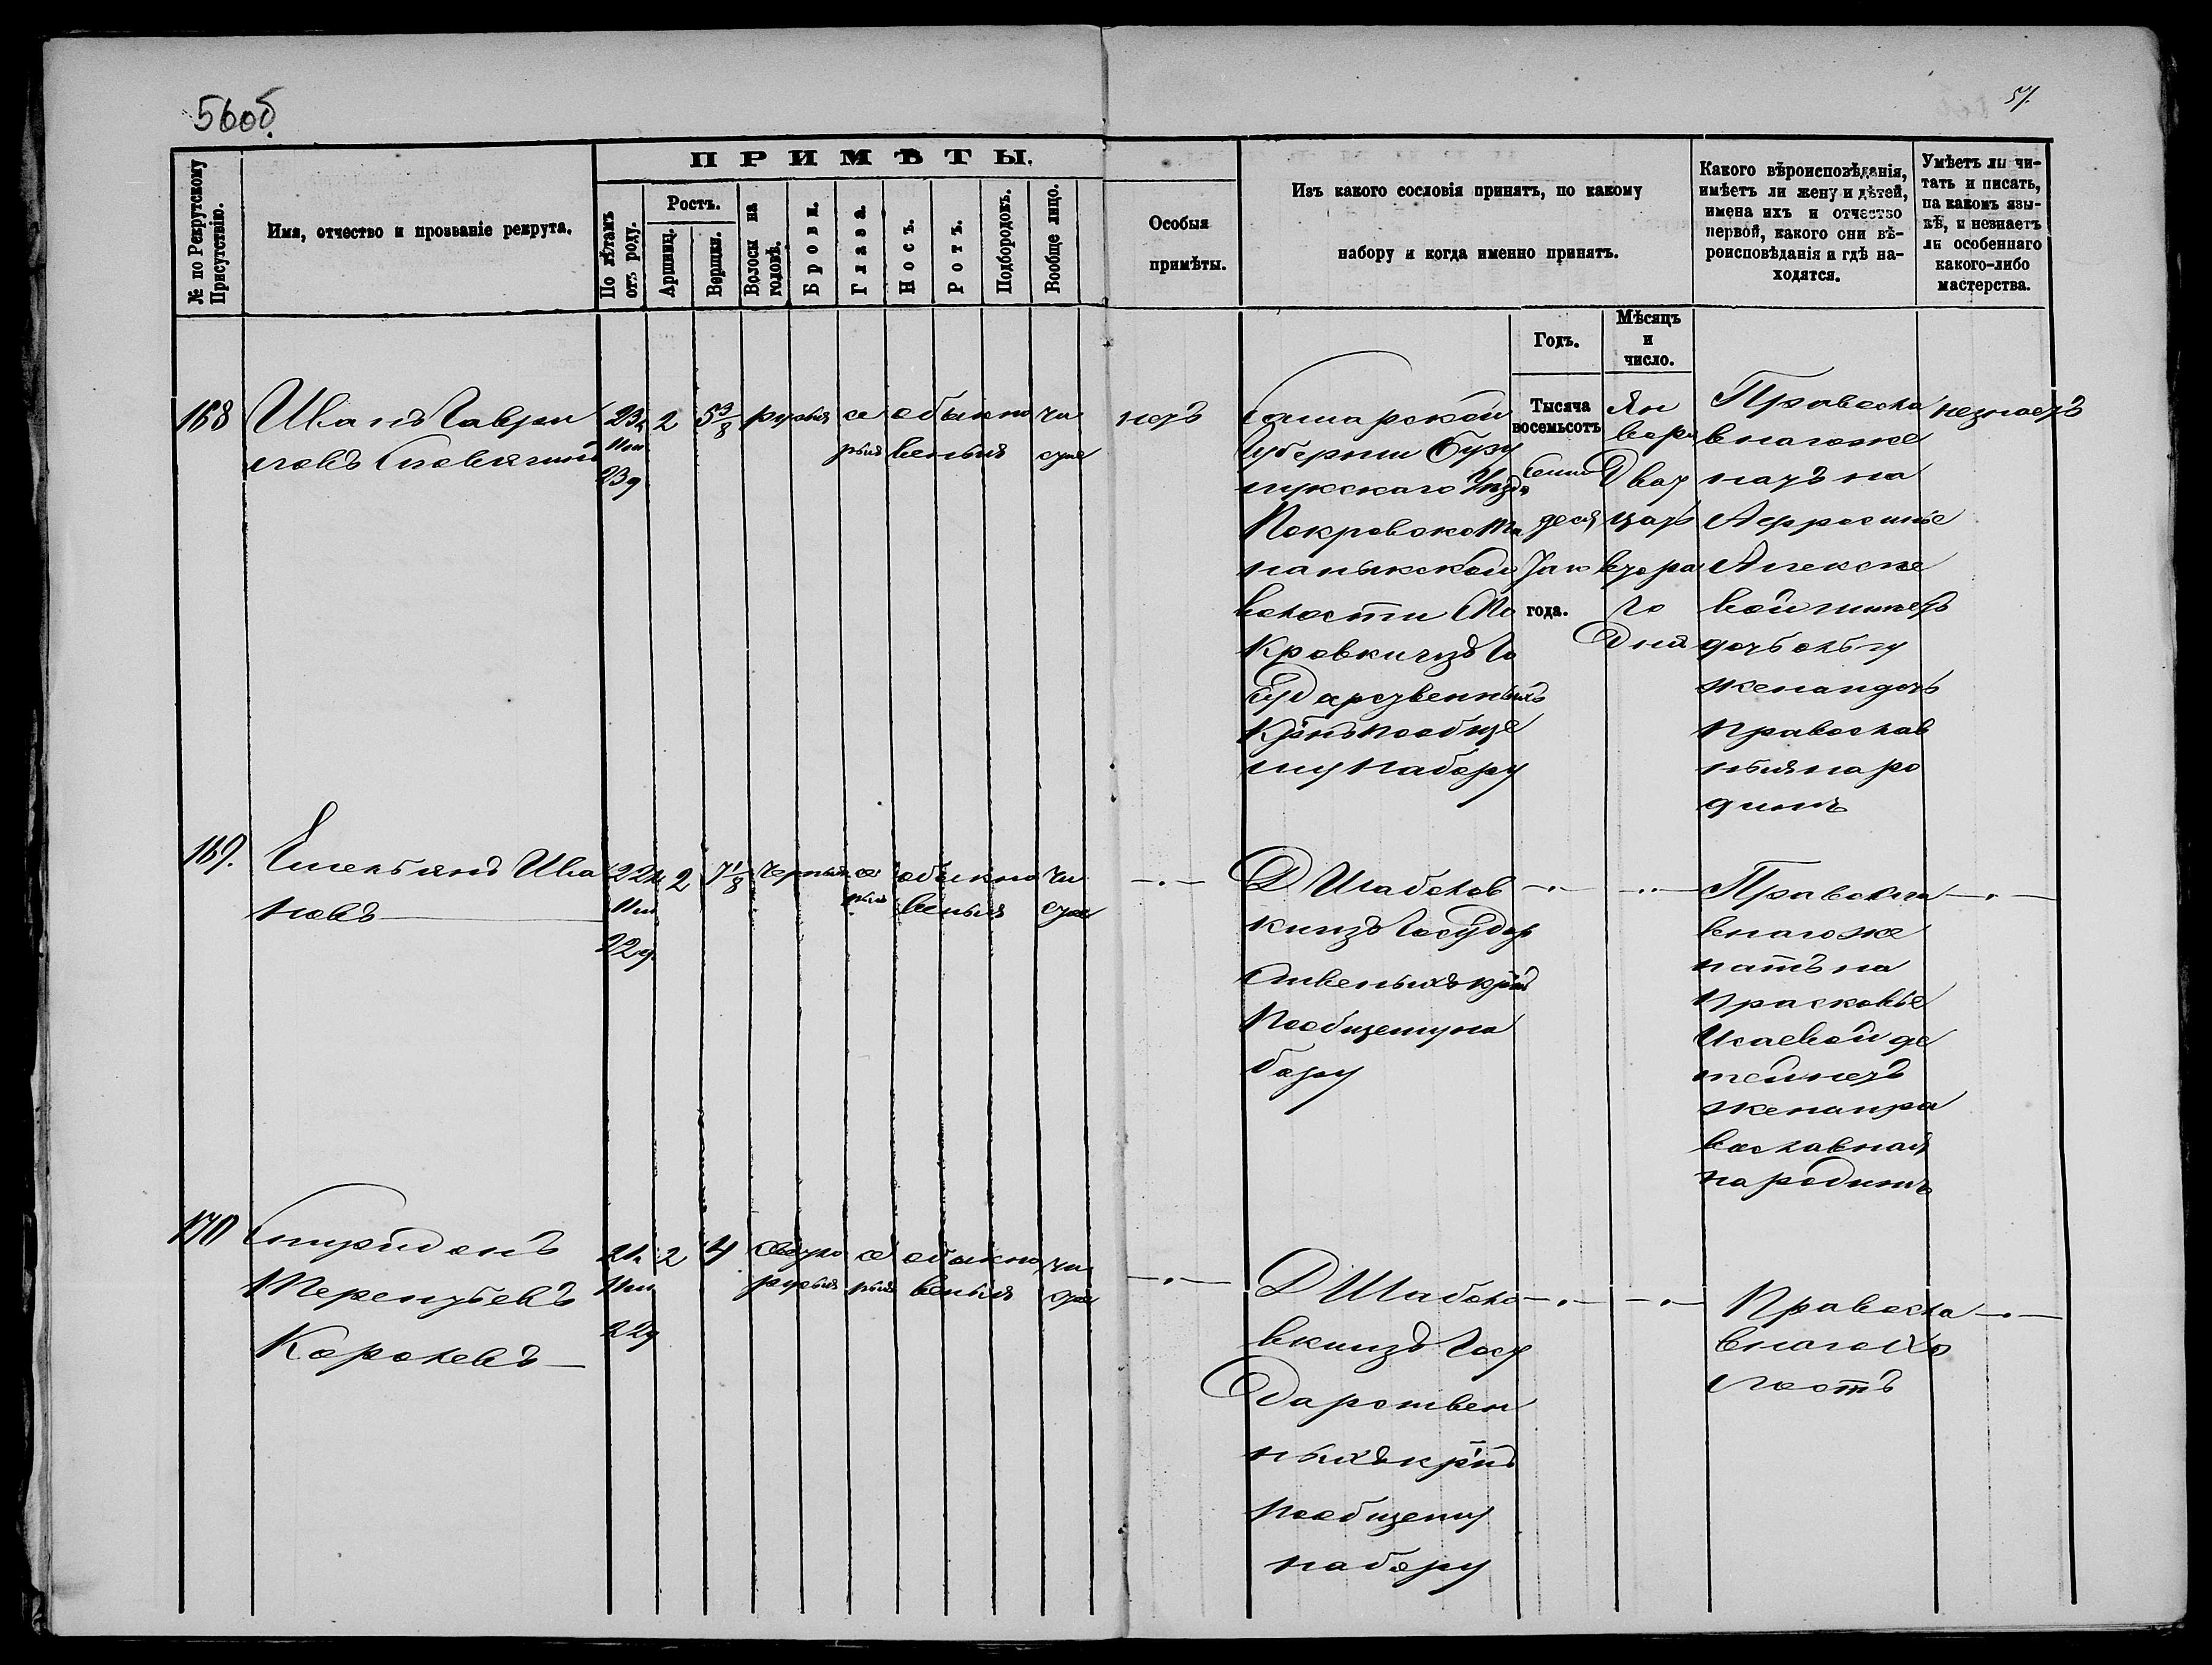 56об.
57.
ПРИМѢТЫ.
№ по Рекрутскому Присутствію.
Имя, отчество и прозваніе рекрута.
По лѣтамъ отъ роду.
Ростъ.
Аршинъ.
Вершки.
Волосы на головѣ.
Брови.
Глаза.
Носъ.
Ротъ.
Подбородокъ.
Вообще лицо.
Особыя
примѣты.
Изъ какого сословія принятъ, по какому
набору и когда именно принятъ.
Годъ.
Мѣсяцъ
и
число.
Какого вѣроисповѣданія,
имѣетъ ли жену и дѣтей,
имена ихъ и отчество
первой, какого они вѣ-
роисповѣданія и гдѣ на-
ходятся.
Умѣетъ ли чи-
тать и писать,
на какомъ язы-
кѣ, и незнаетъ
ли особеннаго
какого-либо
мастерства.
168
Иванъ Гаври
ловъ
23
23
2
5 3/8
русыя
се
рыя
обыкно
веныя
чи
стое
нетъ
Самарской
Губерніи Бузу
лукскаго Уѣзда
Покровско
волости
кровки изъ Го
сударственныхъ
крнъ пообще
му набору
Тысяча
восемьсотъ
семи
десят
года.
Ян
варя
Двад
цать
втора
го
Дня
Правосла
внаго же
натъ на
Афросинье
Алексѣе
вой имѣетъ
дочь ольгу
жена и дочь
православ
ныя наро
динѣ
незнаетъ
169.
Емельянъ Ива
новъ
22
22
2
7 1/8
черныя
се
рыя
обыкно
веныя
чи
стое
Д Шаболов
ки изъ Государ
ственыхъ крнъ
Пообщему на
бору
Правосла
внаго же
натъ на
Прасковье
Исаевой де
тей нетъ
жена пра
вославная
на родинѣ
170
Спиридонъ
Терентьевъ
Королевъ
21
22
2
4
Светло
русыя
се
рыя
обыкно
веныя
чи
стое
Д Шаболо
вки изъ Госу
Дарствен
ныхъ крнъ
пообщему
набору
Правосла
внаго Хо
лостъ